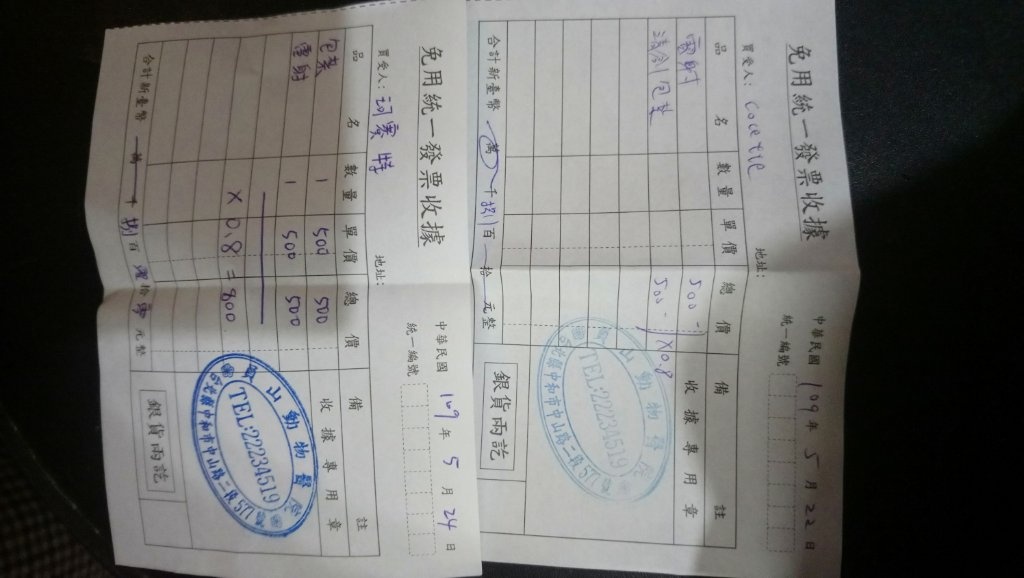 免用統一發票收據
中華民國 109 年 5 月 22 日
買受人: Cocette
地址:
統一編號
品名 數量 單價 總價 備註
雷射 500 -
清創包紮 500 - X0.8
收據專用章
動物醫院
TEL:22234519
台北縣中和市中山路二段
銀貨兩訖
合計新臺幣 萬 千 捌百 拾 元整
免用統一發票收據
中華民國 109 年 5 月 24 日
買受人: 珂賽特
地址:
統一編號
品名 數量 單價 總價 備註
包紮 1 500 500
雷射 1 500 500
X 0.8 = 800
收據專用章
山動物醫院
TEL:22234519
台北縣中和市中山路二段
銀貨兩訖
合計新臺幣 萬 千 捌百 零拾 零元整